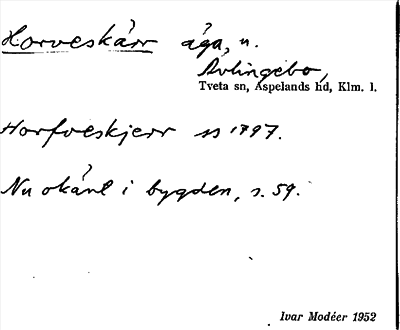 Horveskärr äga, n.
Avlingebo,
Tveta sn, Aspelands hd, Klm. l.
Horfveskjerr ss 1797.
Nu okänt i bygden, s. 59.
Ivar Modéer 1952